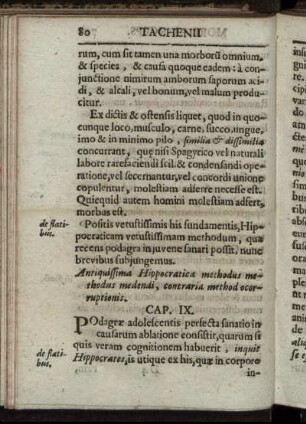 80 TACHENII
rum, cum sit tamen una morborũ omnium,
& species, & causa quoque eadem: à con-
junctione nimirum amborum saporum aci-
di, & alcali, vel bonum, vel malum produ-
citur.
Ex dictis & ostensis liquet, quod in quo-
cunque loco, musculo, carne, succo, ungue,
imo & in minimo pilo, similia & dissimilia
concurrant, quę nisi Spagyrico vel naturali
labore rarefaciendi scil. & condensandi ope-
ratione, vel secernantur, vel concordi unione
copulentur, molestiam adferre necesse est.
Quicquid autem homini molestiam adfert,
morbus est.
de flati-
bus.
Positis vetustissimis his fundamentis, Hip-
pocraticam vetustissimam methodum, quæ
recens podagra in juvene sanari possit, nunc
brevibus subjungemus.
Antiquissima Hippocratica methodus me-
thodus medendi, contraria method ocor-
ruptionis.
CAP. IX.
POdagræ adolescentis perfecta sanatio in
causarum ablatione consistit, quarum si
quis veram cognitionem habuerit, inquit
de flati-
bus.
Hippocrates, is utique ex his, quæ in corpore
in-